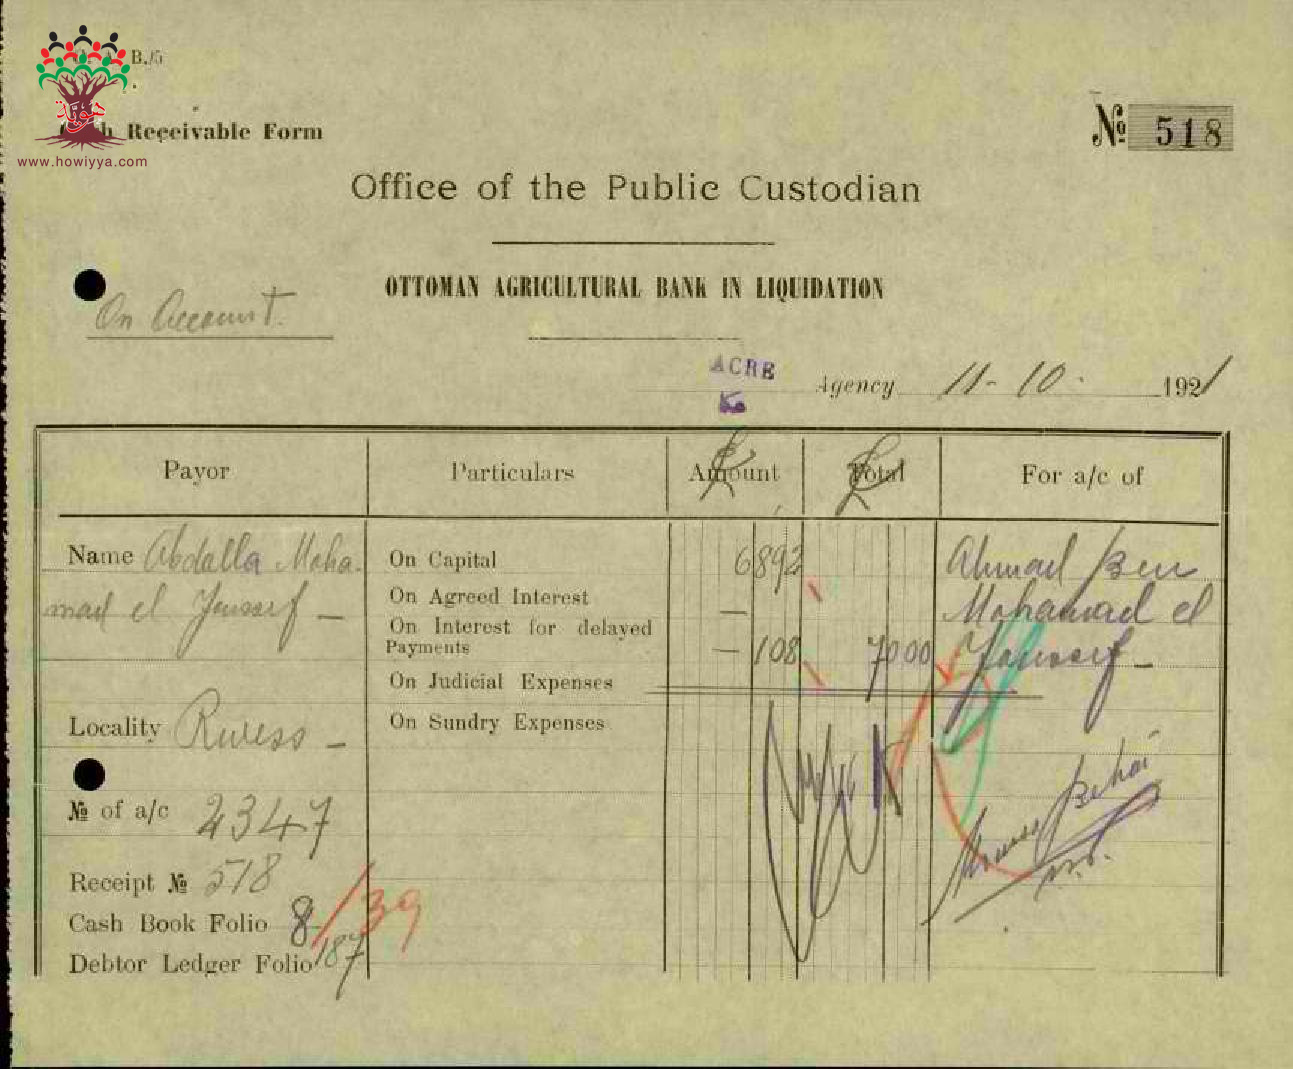 B./5
هوية
www.howiyya.com
Receivable Form
№ 518
Office of the Public Custodian
OTTOMAN AGRICULTURAL BANK IN LIQUIDATION
On Account.
ACRE Agency 11-10. 1921
Payor Particulars Amount Total For a/c of
Name Abdalla Moha-
mad el Youssef —
On Capital 6892
On Agreed Interest —
On Interest for delayed
Payments — 108 7000
On Judicial Expenses
On Sundry Expenses
Ahmad Ben
Mohamad el
Youssef —
Locality Ruess —
№ of a/c 2347
Receipt № 518
Cash Book Folio 8/39
Debtor Ledger Folio 187